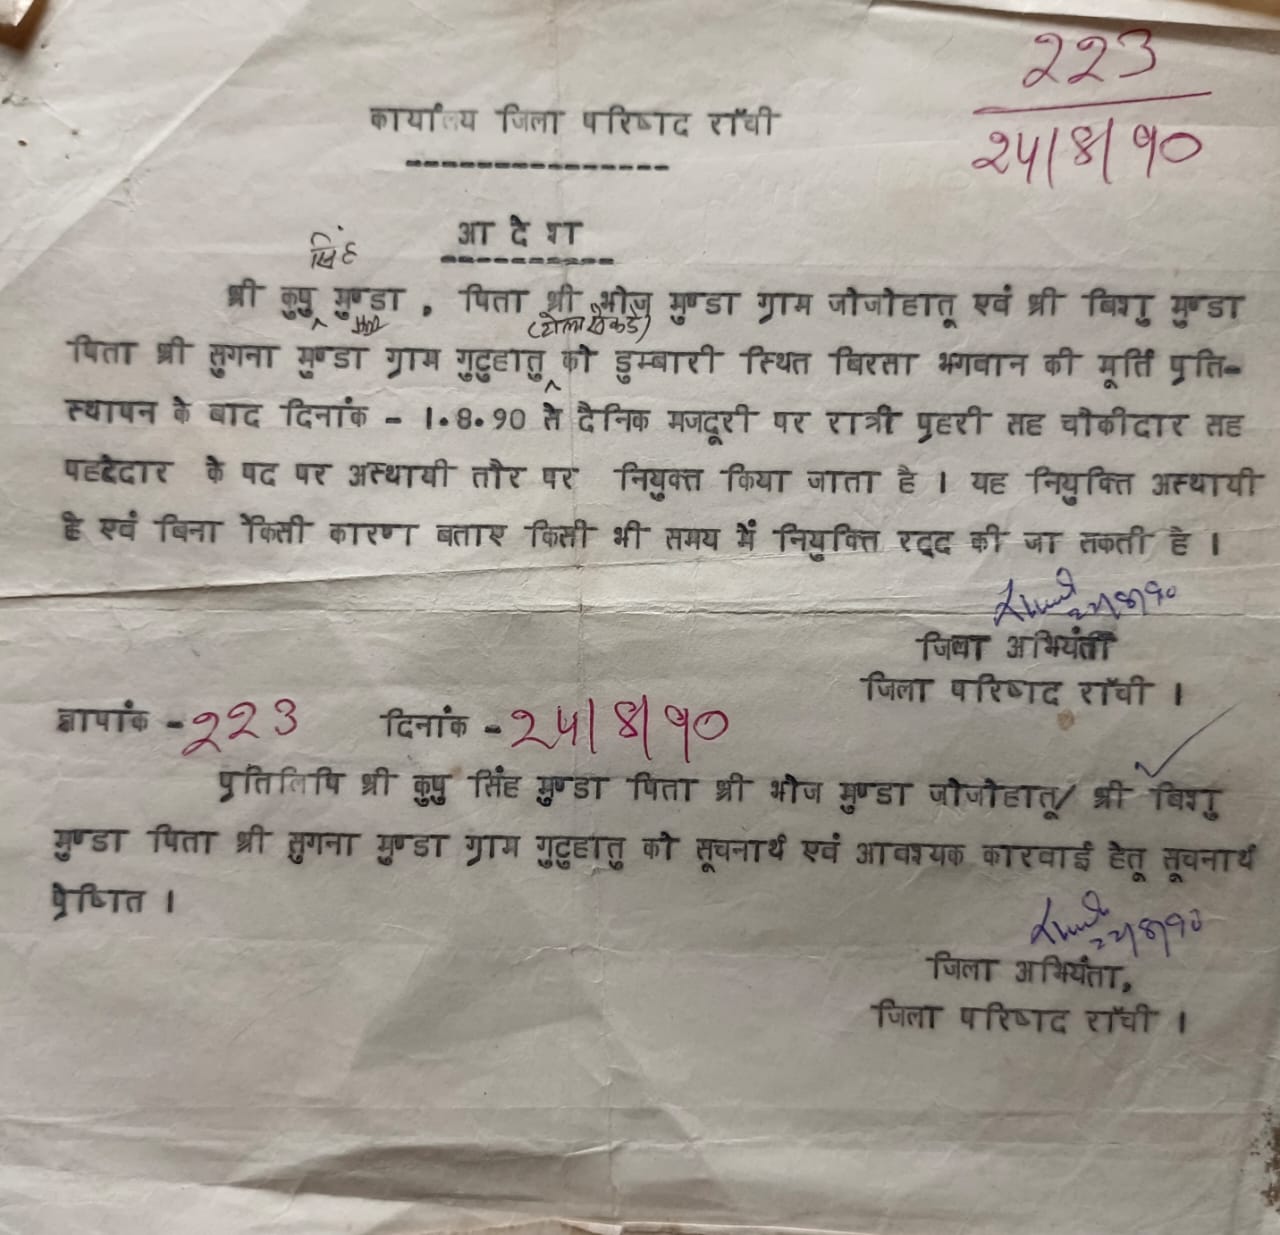 २२३
२५/8/९०
कार्यालय जिला परिषद राँची
आ दे श
सिंह
श्री कुपु मुण्डा , पिता श्री भोज मुण्डा ग्राम जोजोहातू एवं श्री बिशु मुण्डा
पिता श्री सुगना मुण्डा ग्राम गुटुहातु को डुम्बारी स्थित बिरसा भगवान की मूर्ति प्रति-
स्थापन के बाद दिनांक - 1.8.90 से दैनिक मजदूरी पर रात्री प्रहरी सह चौकीदार सह
पहरेदार के पद पर अस्थायी तौर पर नियुक्त किया जाता है । यह नियुक्ति अस्थायी
है एवं बिना किसी कारण बताए किसी भी समय में नियुक्ति रद्द की जा सकती है ।
8/90
जिला अभियंता
जिला परिषद राँची ।
ज्ञापांक - २२३ दिनांक - २५/8/९०
प्रतिलिपि श्री कुपु सिंह मुण्डा पिता श्री भोज मुण्डा जोजोहातू/ श्री बिशु
मुण्डा पिता श्री सुगना मुण्डा ग्राम गुटुहातु को सूचनार्थ एवं आवश्यक कारवाई हेतू सूचनार्थ
प्रेषित ।
8/90
जिला अभियंता,
जिला परिषद राँची ।